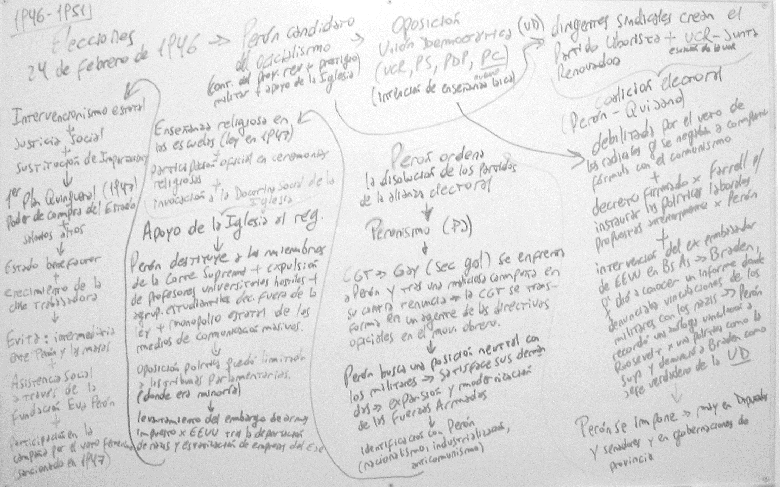 (1946-1951)
Elecciones
24 de febrero de 1946 →
Perón candidato
del oficialismo
(cont. del prov. rev + prestigio
militar + apoyo de la Iglesia)
Oposición
Unión Democrática (UD)
(UCR, PS, PDP, PC)
(Intención de enseñanza laica)
dirigentes sindicales crean el
Partido Laborista + UCR-Junta
Renovadora
Intervencionismo estatal
+
Justicia Social
+
Sustitución de Importaciones
1er Plan Quinquenal (1947)
Poder de compra del Estado
salarios altos
Estado benefactor
crecimiento de la
clase trabajadora
Evita: intermediaria
entre Perón y las masas
+
Asistencia Social
a través de la
Fundación Eva Perón
+
Participación en la
campaña por el voto femenino
(sancionado en 1947)
Enseñanza religiosa en
las escuelas (ley en 1947)
+
participación oficial en ceremonias
religiosas
+
invocación a la Doctrina Social de la
Iglesia
Apoyo de la Iglesia al reg.
Perón destituye a los miembros
de la Corte Suprema + expulsión
de profesores universitarios hostiles +
agrup. estudiantiles dec. fuera de la
ley + monopolio estatal de los
medios de comunicación masivos.
oposición política queda limitada
a las tribunas parlamentarias.
(donde era minoría)
levantamiento del embargo de armas
impuesto x EEUU tras la deportación
de nazis y estatización de empresas del Eje
Perón ordena
la disolución de los Partidos
de la alianza electoral
Peronismo (PJ)
CGT → Gay (sec. gral) se enfrenta
a Perón y tras una maliciosa campaña en
su contra renuncia → la CGT se trans-
forma en un agente de las directivas
oficiales en el mov. obrero.
Perón busca una posición neutral con
los militares → satisface sus deman
das → expansión y modernización
de las Fuerzas Armadas
identificación con Perón
(nacionalismo, industrialización,
anticomunismo)
coalición electoral
(Perón - Quijano)
debilitada por el veto de
los radicales q' se negaba a compartir
fórmula con el comunismo
+
decreto firmado x Farrell p/
instaurar las políticas laborales
propuestas anteriormente x Perón
+
intervención del ex embajador
de EEUU en Bs As → Braden,
q' dió a conocer un informe donde
denunciaba vinculaciones de los
militares con los nazis → Perón
Roosevelt, a un patriota como lo
suyo y denunció a Braden como
jefe verdadero de la UD
Perón se impone → may en Diputados
y senadores y en gobernaciones de
provincia